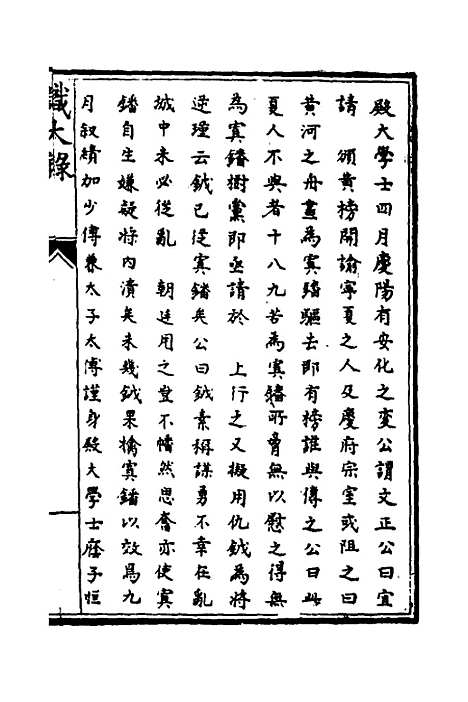 殿大學士四月慶陽有安化之變公謂文正公曰宜
請　頒黃榜開諭寧夏之人及慶府宗室或阻之曰
黃河之舟盡為寘鐇驅去即有榜誰與傳之公曰此
夏人不與者十八九苦為寘鐇所脅無以慰之得無
為寘鐇樹黨即亟請於　上行之又擬用仇鉞為將
逆瑾云鉞已從寘鐇矣公曰鉞素稱謀勇不幸在亂
城中未必從亂　朝廷用之豈不幡然思奮亦使寘
鐇自生嫌疑將內潰矣未幾鉞果擒寘鐇以效焉九
月敘績加少傅兼太子太傅謹身殿大學士廕子恒
識大錄